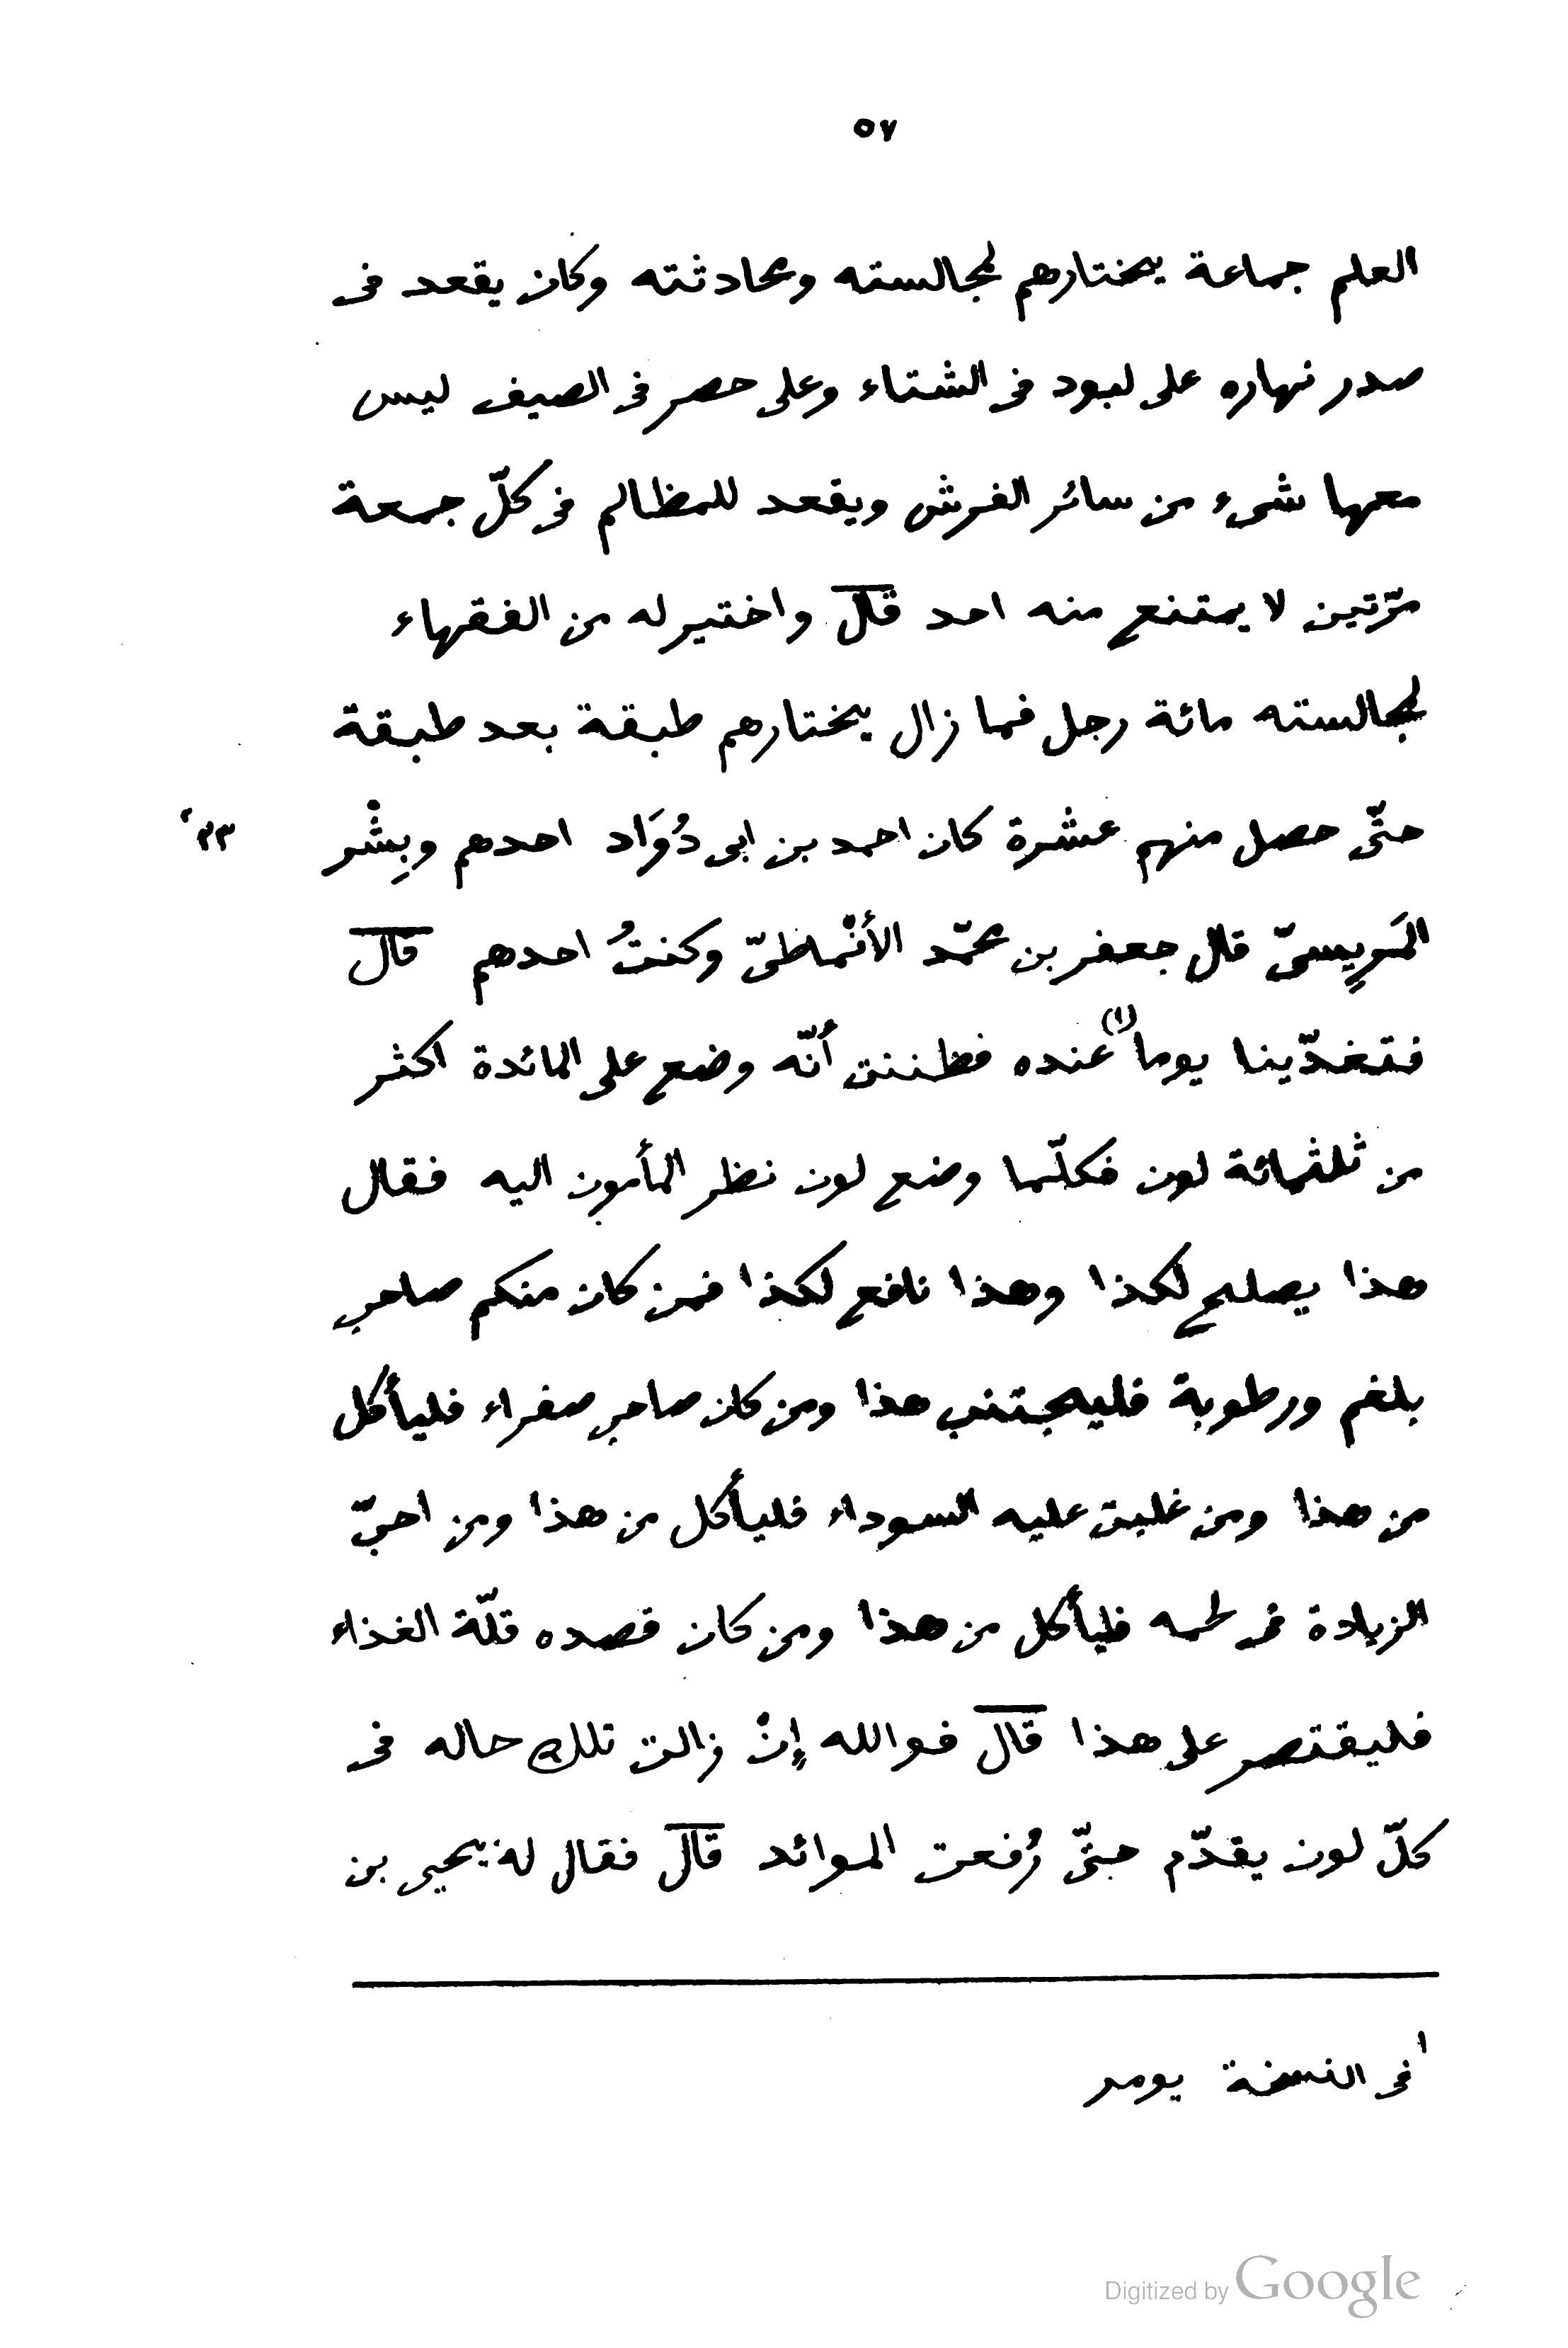 ٥٧
العلم جماعة يختارهم لمجالسته ومحادثته وكان يقعد فى
صدر نهاره على لبود فى الشتاء وعلى حصر فى الصيف ليس
معها شىء من سائر الفرش ويقعد للمظالم فى كلّ جمعة
مرّتين لا يمتنع منه احد قال واختير له من الفقهاء
لمجالسته مائة رجل فما زال يختارهم طبقة بعد طبقة
حتّى حصل منهم عشرة كان احمد بن ابى دُوَاد احدهم وبِشْر
المَرِيسىّ قال جعفر بن محمّد الأنْماطىّ وكنتُ احدهم قال
فتغدّينا يوما (١) عنده فظننت أنّه وضع على المائدة اكثر
من ثلثمائة لون فكلّما وضع لون نظر المأمون اليه فقال
هذا يصلح لكذا وهذا نافع لكذا فمن كان منكم صاحب
بلغم ورطوبة فليجتنب هذا ومن كان صاحب صفراء فليأكل
من هذا ومن غلبت عليه السوداء فليأكل من هذا ومن احبّ
الزيادة فى لحمه فليأكل من هذا ومن كان قصده قلّة الغذاء
فليقتصر على هذا قال فوالله إنْ زالت تلك حاله فى
كلّ لون يقدّم حتّى رُفعت الموائد قال فقال له يحيى بن
١ فى النسخة يومر
Digitized by Google